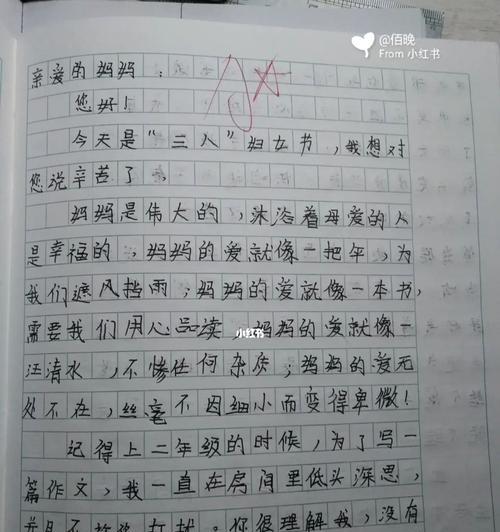 @佰晚
From 小红书
亲爱的妈妈：
您好！
今天是“三八”妇女节，我想对
您说辛苦了。
妈妈是伟大的，沐浴着母爱的人
是幸福的，妈妈的爱就像一把伞，为
我们遮风挡雨；妈妈的爱就像一本书，
需要我们用心品读，妈妈的爱就像一
小红书
汪清水，不惨任何杂质；妈妈的爱无
处不在，丝毫不因细小而变得卑微！
记得上二年级的时候，为了写一
篇作文，我一直在房间里低头深思，
并且不 打扰。你很理解我，没有